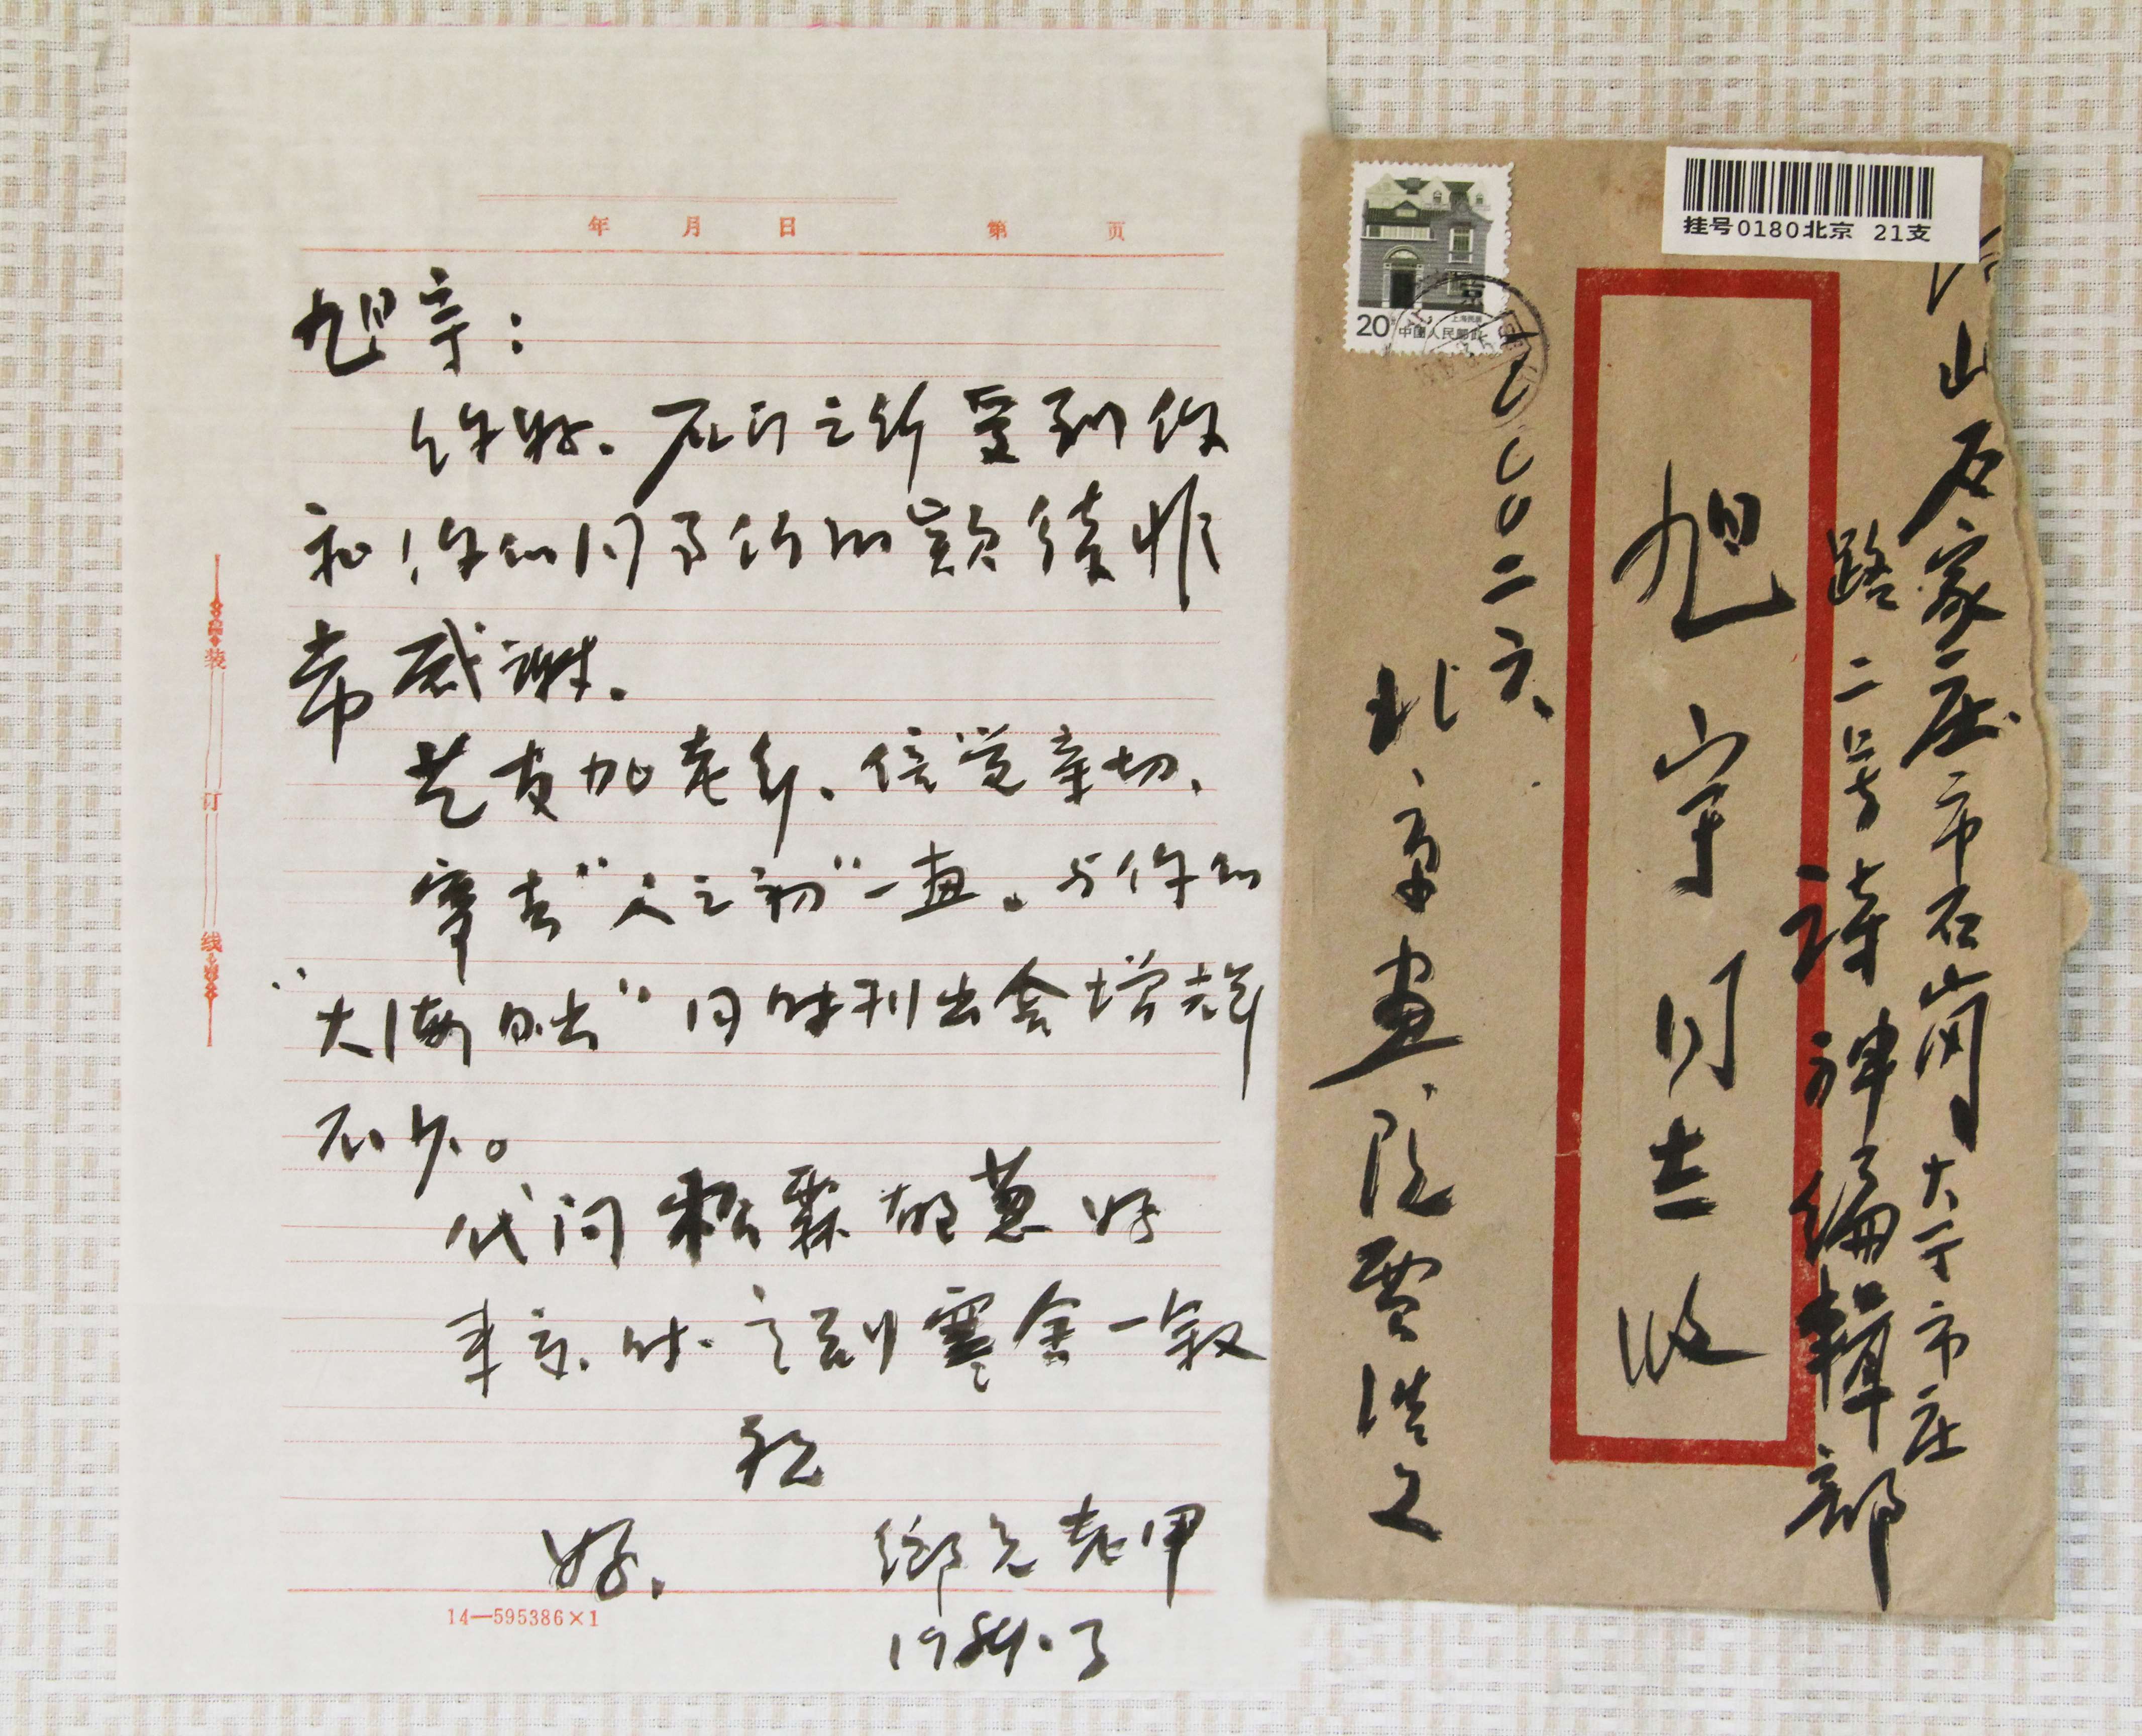 年 月 日 第 页
旭宇：
你好。在行之所受到你
和你们同事们的款待非
常感谢。
艺友加老乡、倍觉亲切、
寄去“人之初”一画。与你的
“大海日出”同时刊出会增光
不少。
代问 松霖 胡蕙 好
来京时. 之到寒舍一叙
祝
好.
乡兄 老甲
装
订
线
14—595386×1
挂号0180北京 21支
20
上海民居
中国人民邮政
石家庄市石岗大
市庄
路二号 诗神编辑部
旭宇同志 收
北京画院 贾浩义
一〇〇〇二六